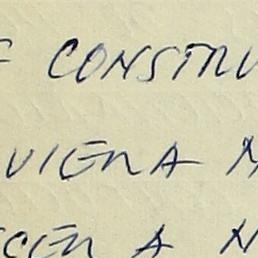 CONSTRU
VIERA
CER A N